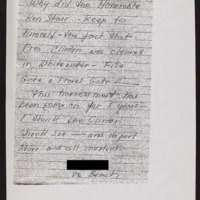 Why did the Honorable
Ken Starr - Keep to
himself - the fact that
Pres. Clinton was cleared
in Whitewater - File
Gate & Travel Gate -
This harressment has
been going on for 5 years -
I think the Clinton
should sue — and deport
Starr and all involved.
Beach